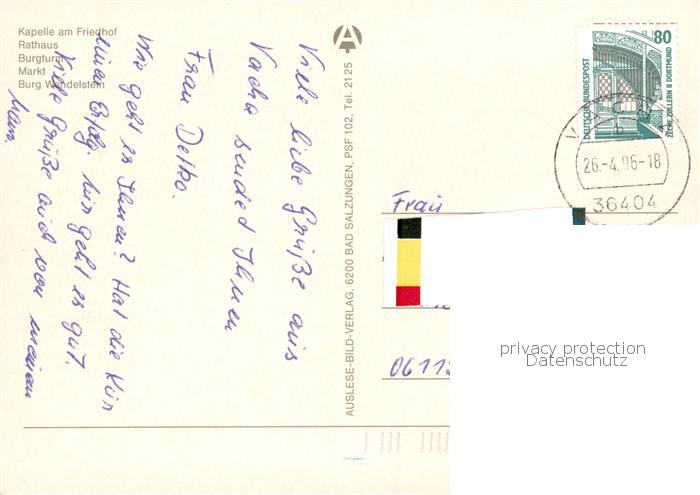 Kapelle am Friedhof
Rathaus
Burgturm
Markt
Burg Wendelstein
Viele liebe Grüße aus
Vacha sendet Ihnen
Frau Detko.
Wie geht es Ihnen? Hat die Kur
einen Erfolg. Mir geht es gut.
Viele Grüße auch von meinem
Mann.
AUSLESE-BILD-VERLAG, 6200 BAD SALZUNGEN, PSF 102, Tel. 2125
80
DEUTSCHE BUNDESPOST
ZECHE ZOLLERN II DORTMUND
VACHA
b
26.-4.96-18
36404
Frau
0611
privacy protection
Datenschutz